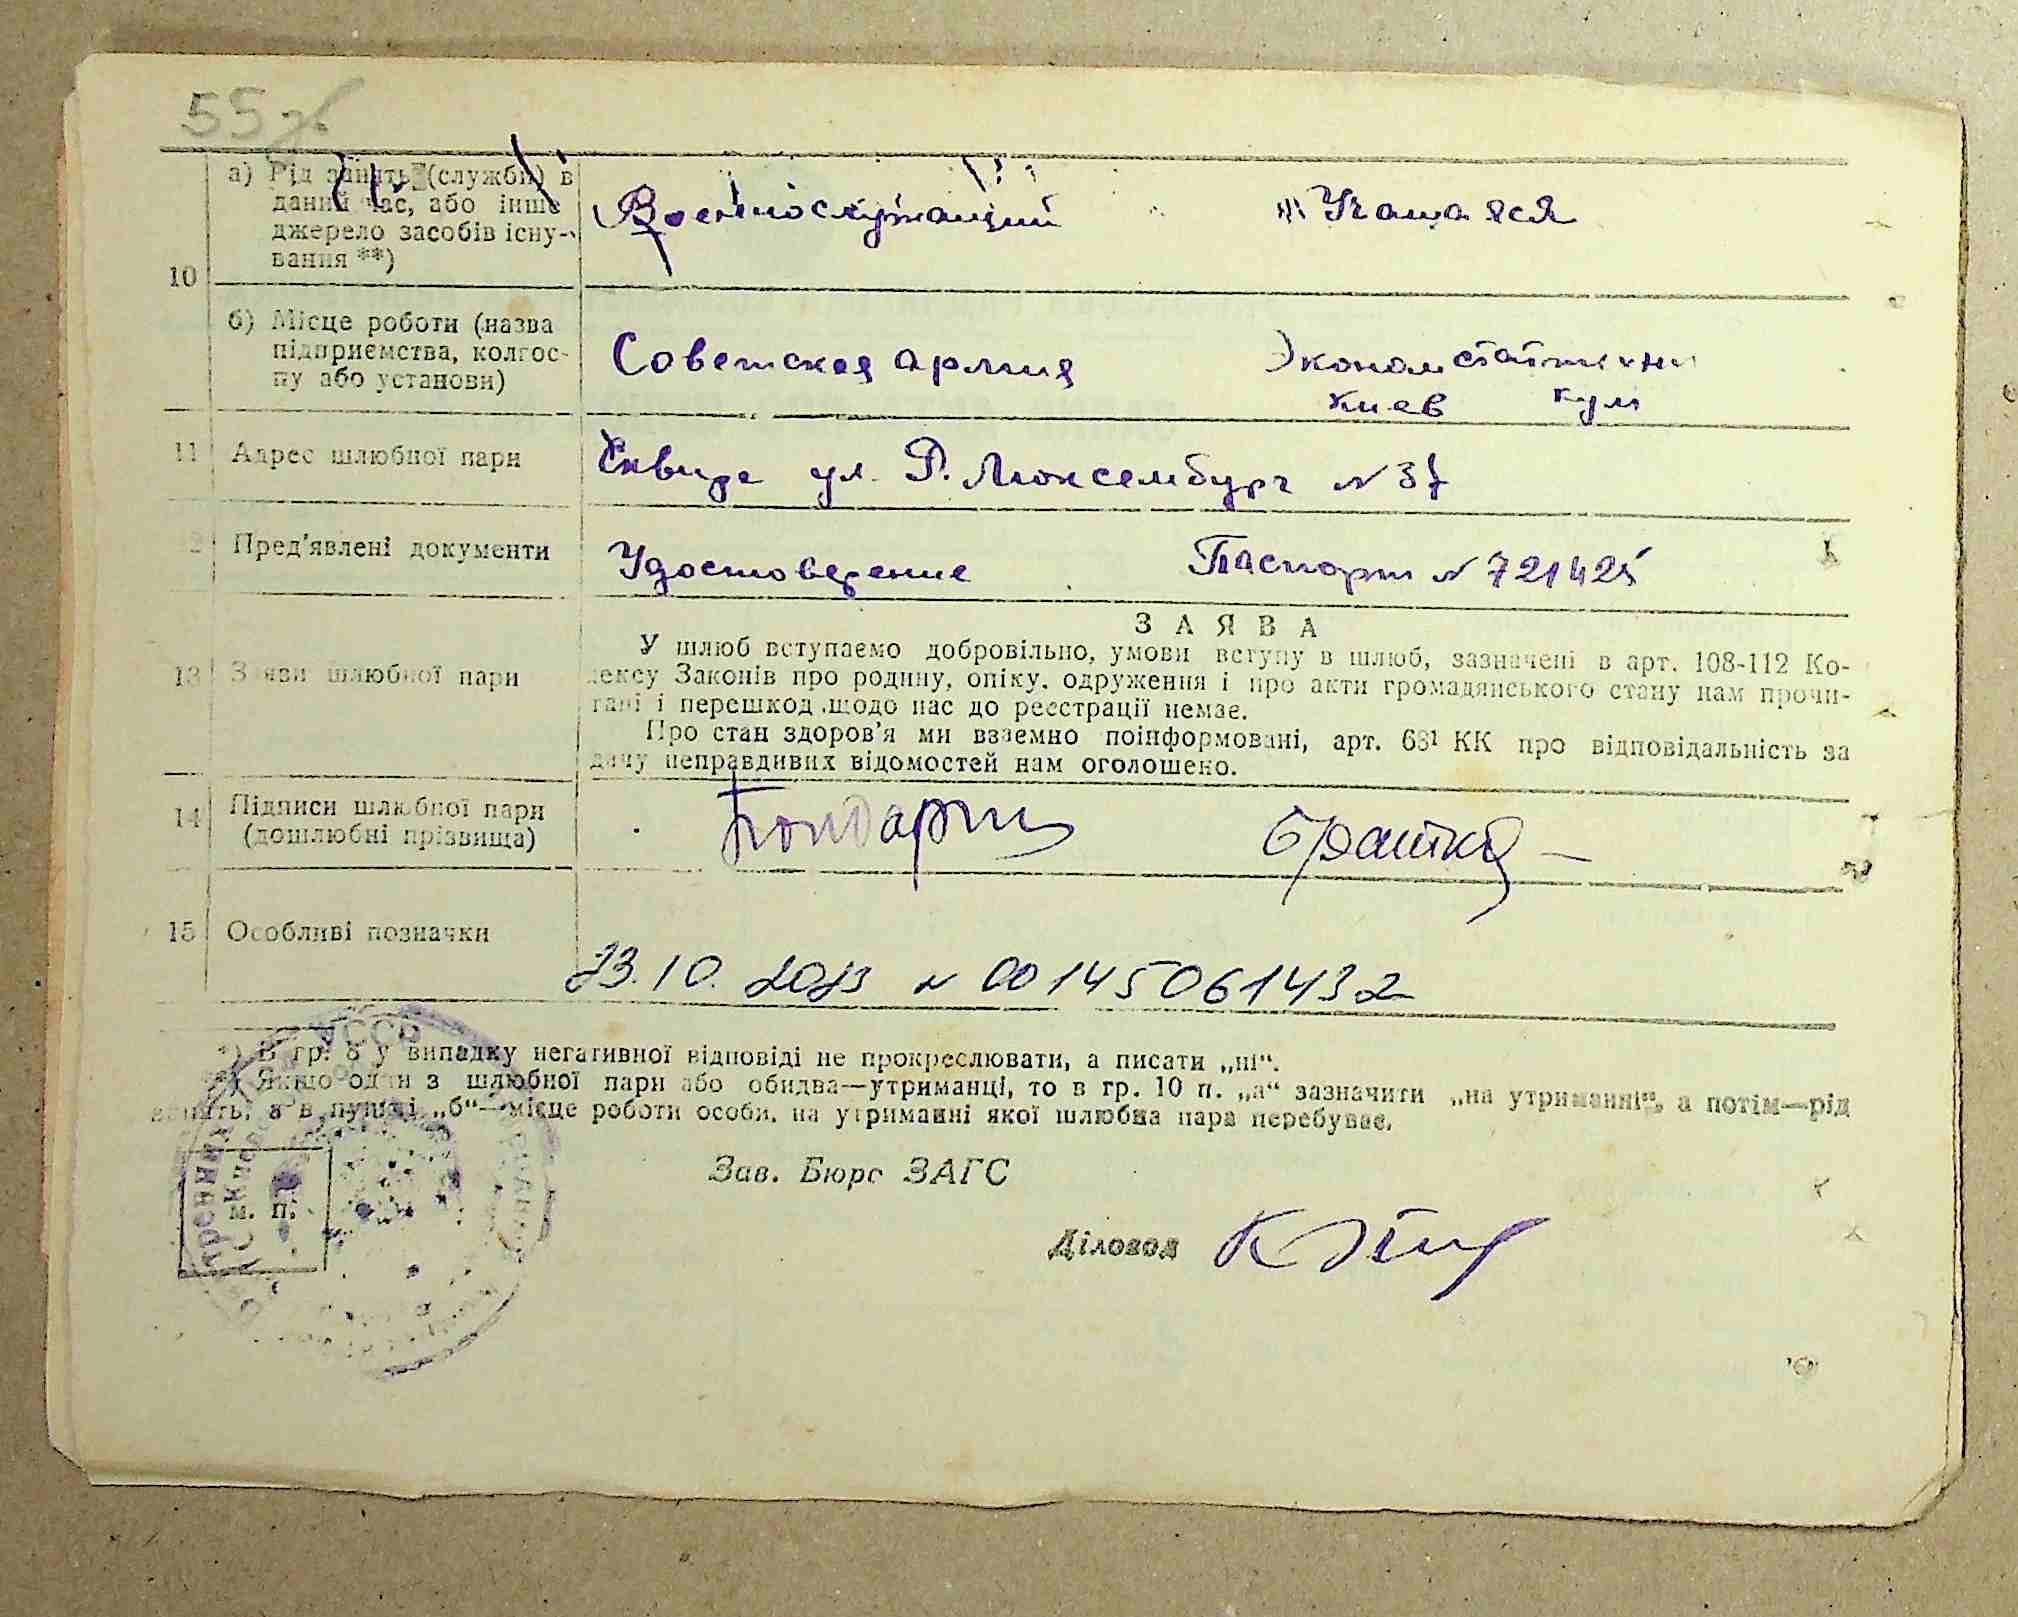 55
а) Рід занять (служби) в
даний час, або інше
джерело засобів існу-
вання **)
10
Военнослужащий Учащаяся
б) Місце роботи (назва
підприємства, колгос-
пу або установи)
Советская армия Эконом статтехни
Киев кум
11 Адрес шлюбної пари
Сквира ул. Р. Люксембург №37
Пред'явлені документи
Удостоверение Паспорт №721425
ЗАЯВА
13 Заяви шлюбної пари
У шлюб вступаємо добровільно, умови вступу в шлюб, зазначені в арт. 108-112 Ко-
дексу Законів про родину, опіку, одруження і про акти громадянського стану нам прочи-
тані і перешкод щодо нас до реєстрації немає.
Про стан здоров'я ми взаємно поінформовані, арт. 68¹ КК про відповідальність за
дачу неправдивих відомостей нам оголошено.
14 Підписи шлюбної пари
(дошлюбні прізвища)
15 Особливі позначки
23.10.2023 № 00145061432
*) В гр. 8 у випадку негативної відповіді не прокреслювати, а писати „ні“.
**) Якщо один з шлюбної пари або обидва—утриманці, то в гр. 10 п. „а“ зазначити „на утриманні“, а потім—рід
занять, а в пункті „б“—місце роботи особи, на утриманні якої шлюбна пара перебуває.
Зав. Бюро ЗАГС
м. п.
Діловод
УССР